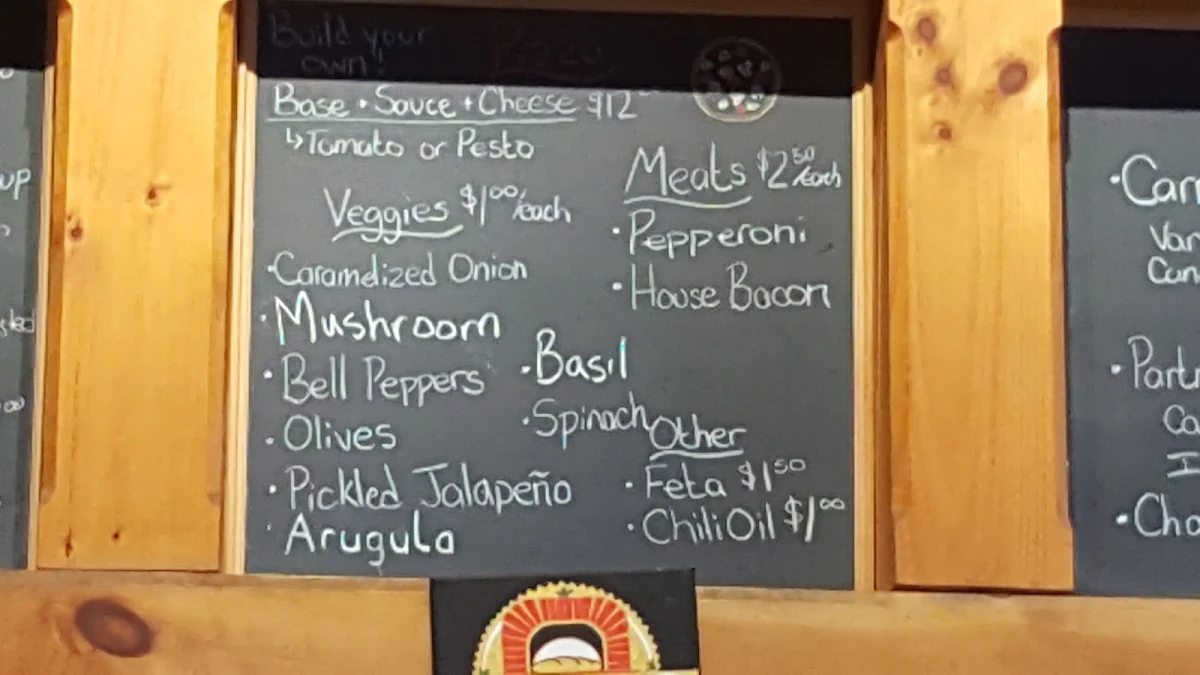 Build your
own! Pizza
Base + Sauce + Cheese $12
↳Tomato or Pesto
Veggies $1⁰⁰/each
·Caramelized Onion
·Mushroom
·Bell Peppers
·Olives
·Pickled Jalapeño
·Arugula
·Basil
·Spinach
Meats $2⁵⁰/each
·Pepperoni
·House Bacon
Other
·Feta $1⁵⁰
·Chili Oil $1⁰⁰
up